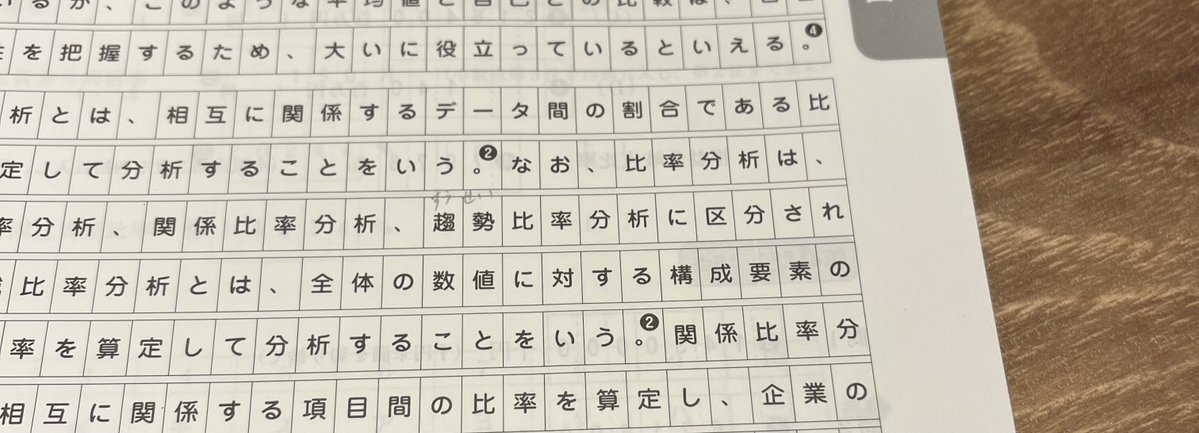 を把握するため、大いに役立っているといえる。❹
析とは、相互に関係するデータ間の割合である比
定して分析することをいう。❷なお、比率分析は、
すうせい
率分析、関係比率分析、趨勢比率分析に区分され
比率分析とは、全体の数値に対する構成要素の
率を算定して分析することをいう。❷関係比率分
相互に関係する項目間の比率を算定し、企業の